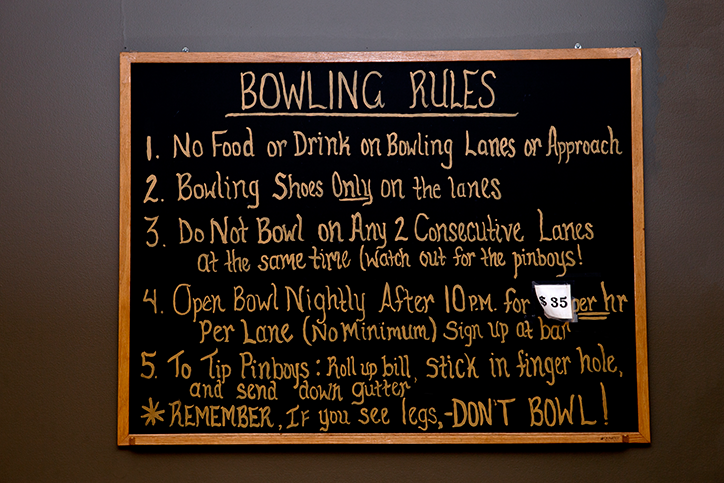 BOWLING RULES
1. No Food or Drink on Bowling Lanes or Approach
2. Bowling Shoes Only on the lanes
3. Do Not Bowl on Any 2 Consecutive Lanes
at the same time (watch out for the pinboys!
4. Open Bowl Nightly After 10 P.M. for $35 per hr
Per Lane (No Minimum) Sign up at bar
5. To Tip Pinboys: Roll up bill, stick in finger hole,
and send down gutter
* REMEMBER, IF you see legs, -DON'T BOWL!